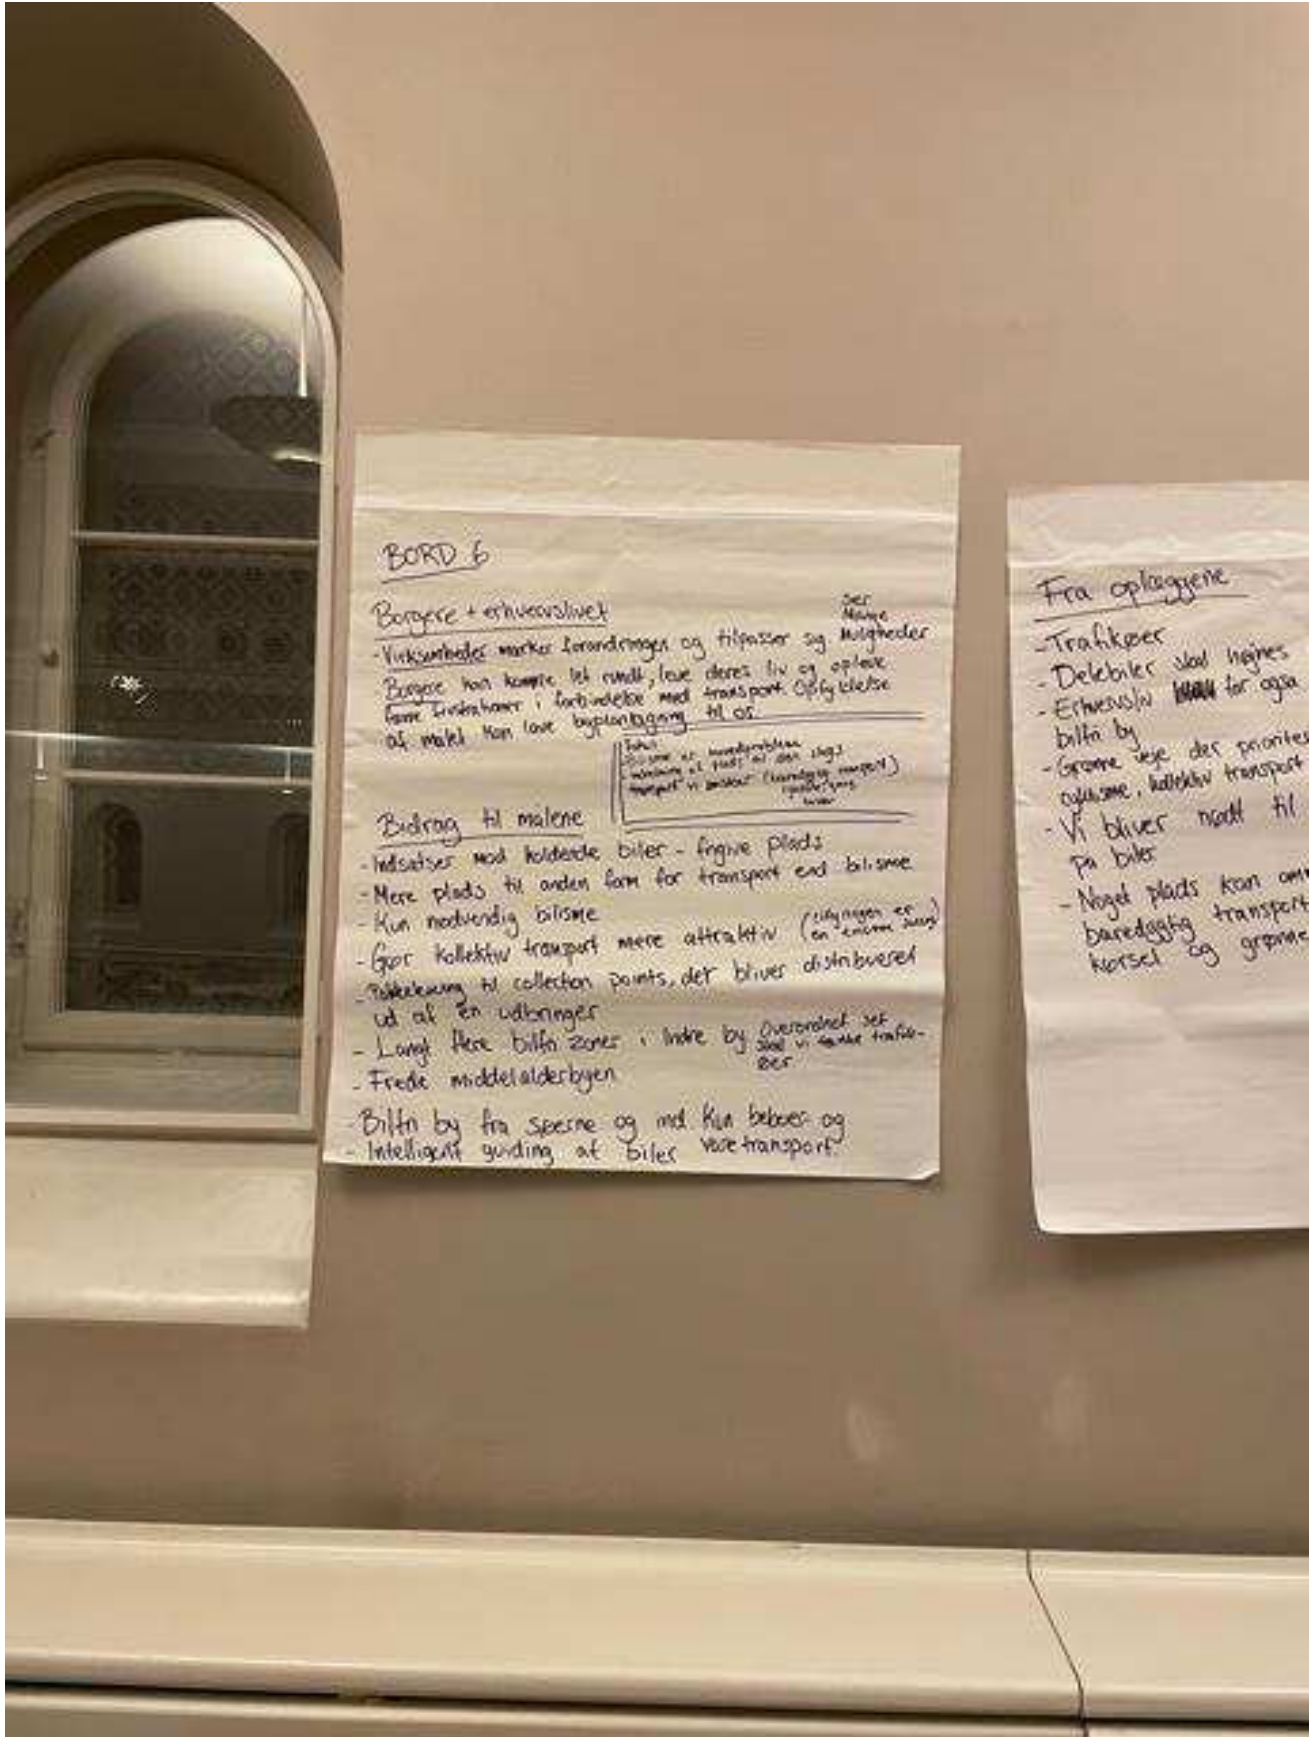 BORD 6
Borgere + erhvervslivet
- Virksomheder mærker forandringen og tilpasser sig
Ser
Mange
Muligheder
Borgere kan komme let rundt, leve deres liv og opleve
færre frustrationer i forbindelse med transport. Opfyldelse
af målet kan lave byplanlægning til os.
Fokus:
bilisme er hovedproblem
plads til den slags
transport vi ønsker (bæredygtig transport)
Bidrag til målene
- Indsatser mod holdende biler - frigive plads
- Mere plads til anden form for transport end bilisme
- Kun nødvendig bilisme
- Gør kollektiv transport mere attraktiv (cityringen er
en enorm succes)
- Pakkelevering til collection points, det bliver distribueret
ud af én udbringer
- Langt flere bilfri zoner i Indre by
Overordnet set
skal vi tænke trafik-
øer
- Frede middelalderbyen
- Bilfri by fra søerne og ind Kun beboer og
varetransport.
- Intelligent guiding af biler
Fra oplæggene
- Trafikøer
- Delebiler skal højnes
- Erhvervsliv for også
bilfri by
- Grønne veje der priorites
cyklisme, kollektiv transport
- Vi bliver nødt til
på biler
- Noget plads kan om
bæredygtig transport
kørsel og grønne